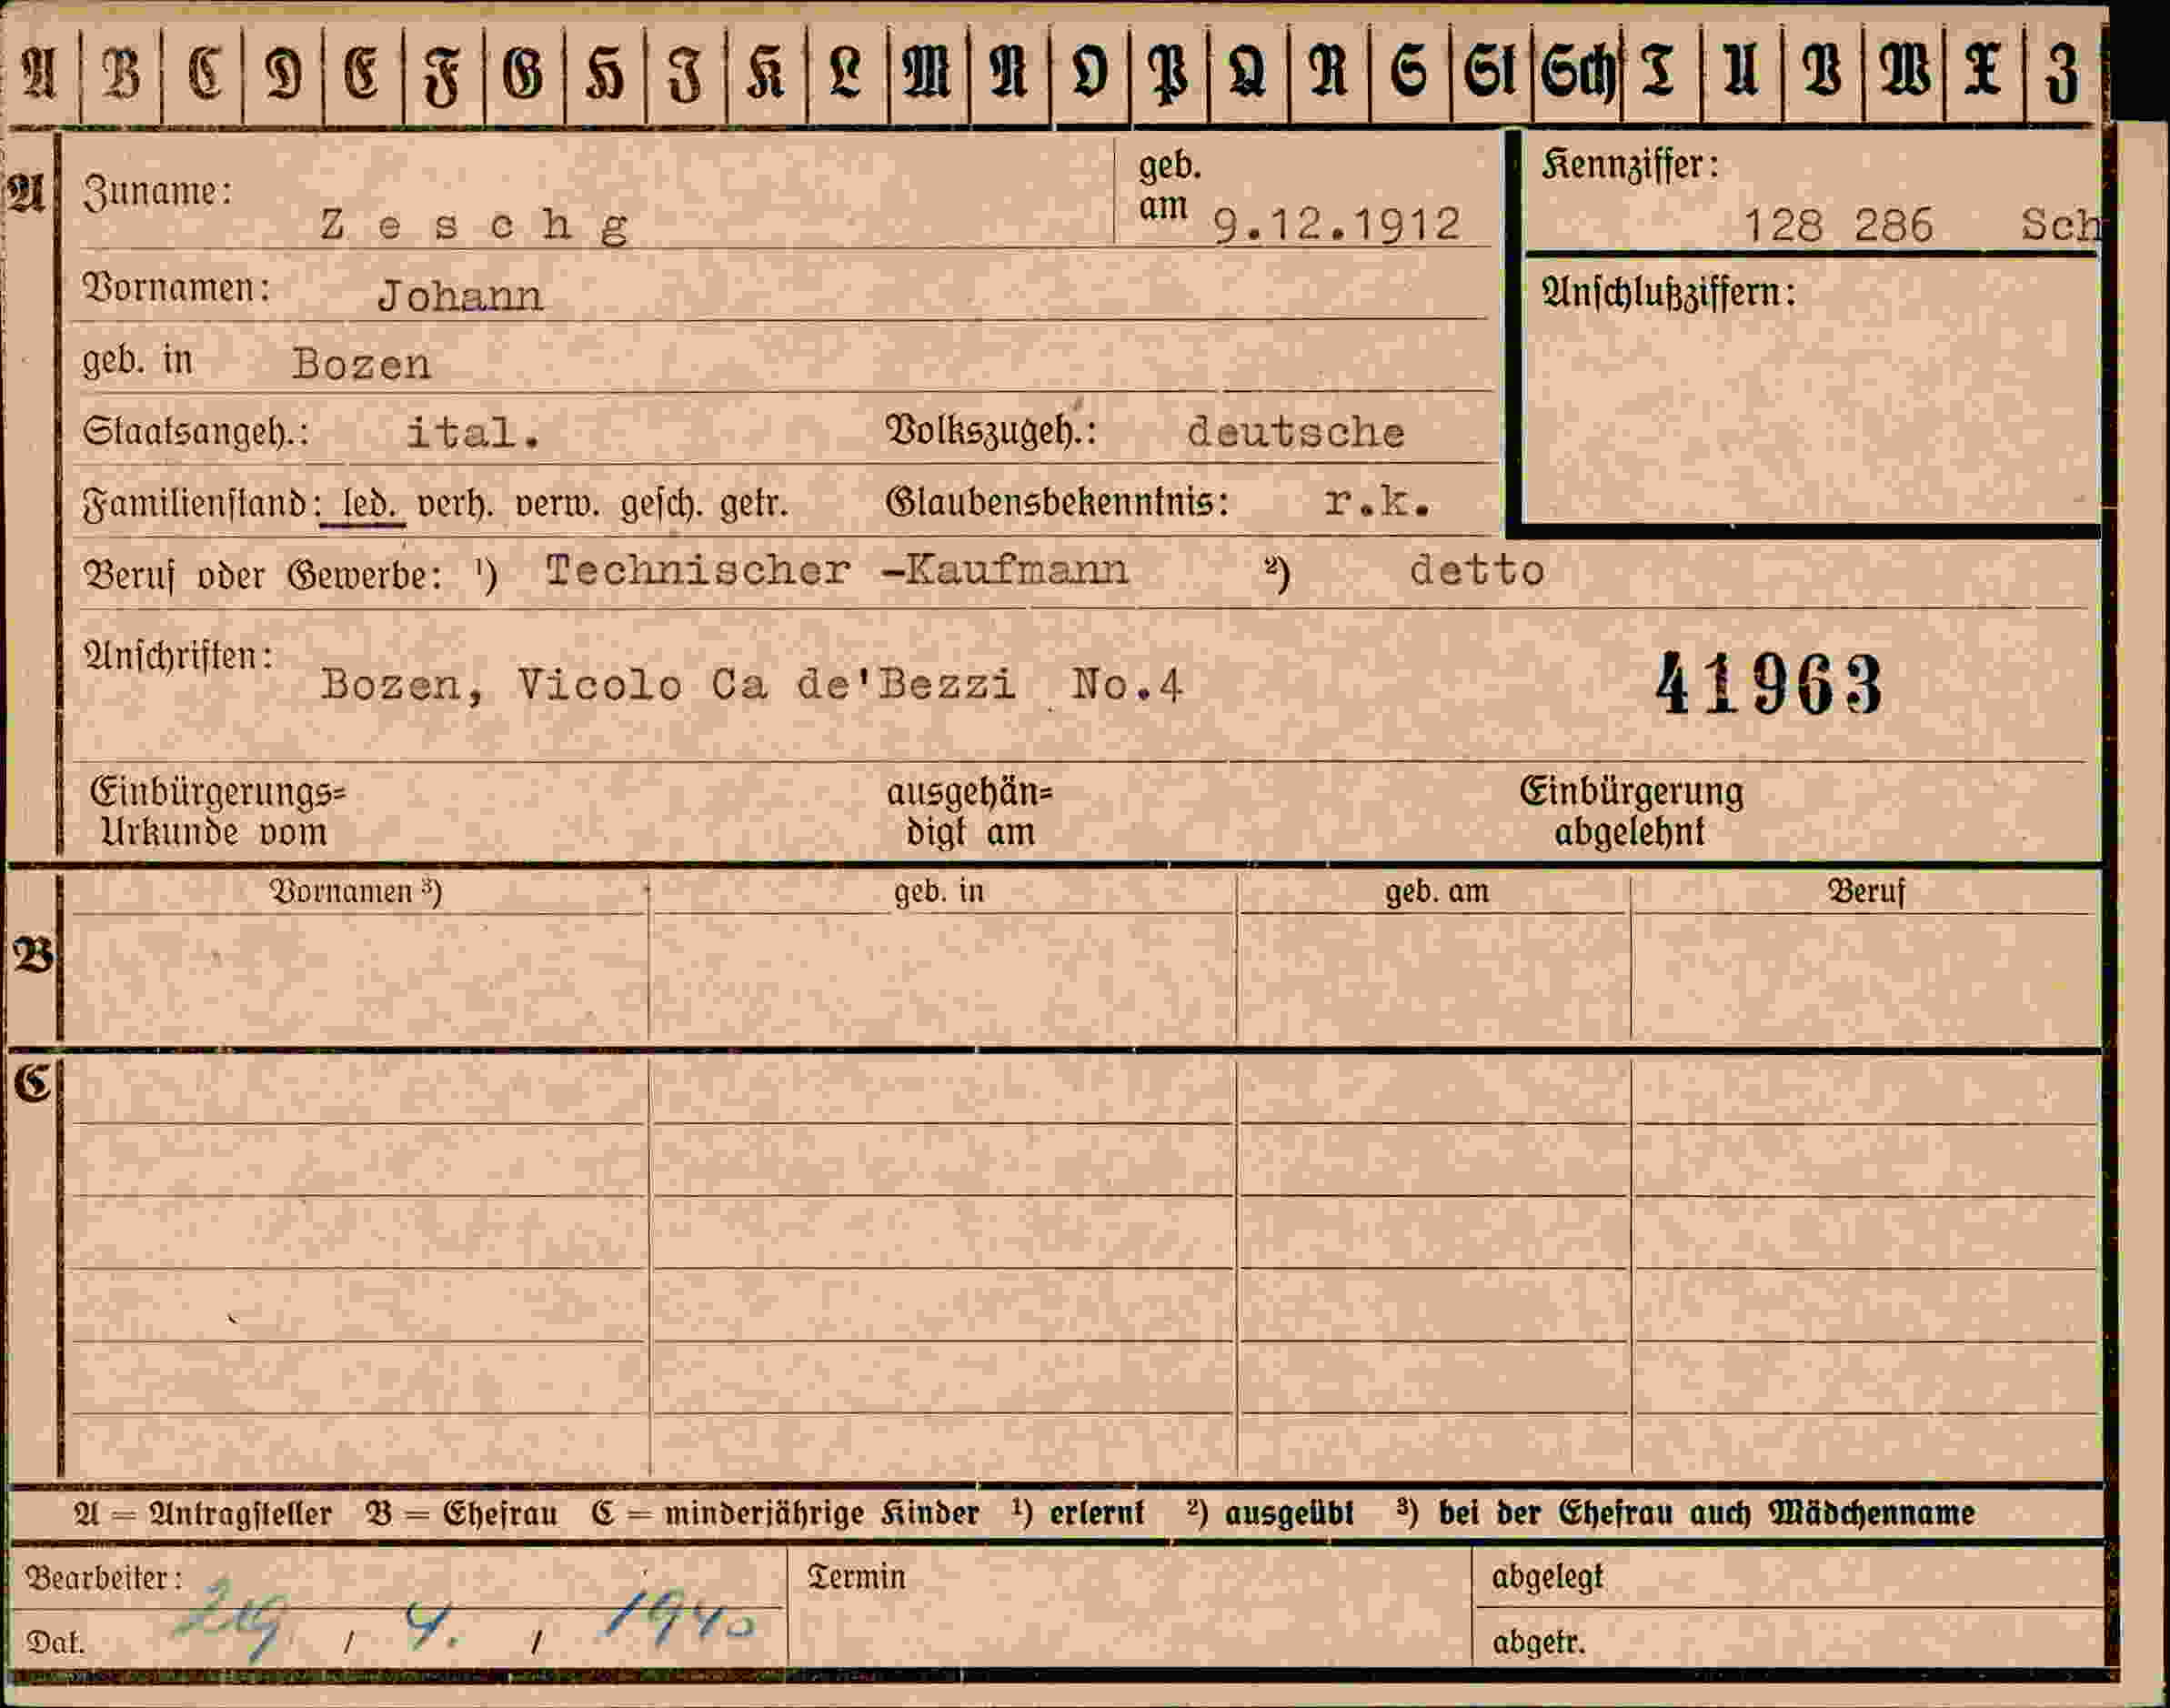 A B C D E F G H I K L M N O P Q R S St Sch T U V W X Z
A Zuname: Zeschg geb. am 9.12.1912 Kennziffer: 128 286 Sch
Vornamen: Johann Anschlußziffern:
geb. in Bozen
Staatsangeh.: ital. Volkszugeh.: deutsche
Familienstand: led. verh. verw. gesch. getr. Glaubensbekenntnis: r.k.
Beruf oder Gewerbe: ¹) Technischer -Kaufmann ²) detto
Anschriften: Bozen, Vicolo Ca de'Bezzi No.4 41963
Einbürgerungs= ausgehän= Einbürgerung
Urkunde vom digt am abgelehnt
Vornamen ³) geb. in geb. am Beruf
B
C
A = Antragsteller B = Ehefrau C = minderjährige Kinder ¹) erlernt ²) ausgeübt ³) bei der Ehefrau auch Mädchenname
Bearbeiter: Termin abgelegt
Dat. / 4. / 1940 abgetr.